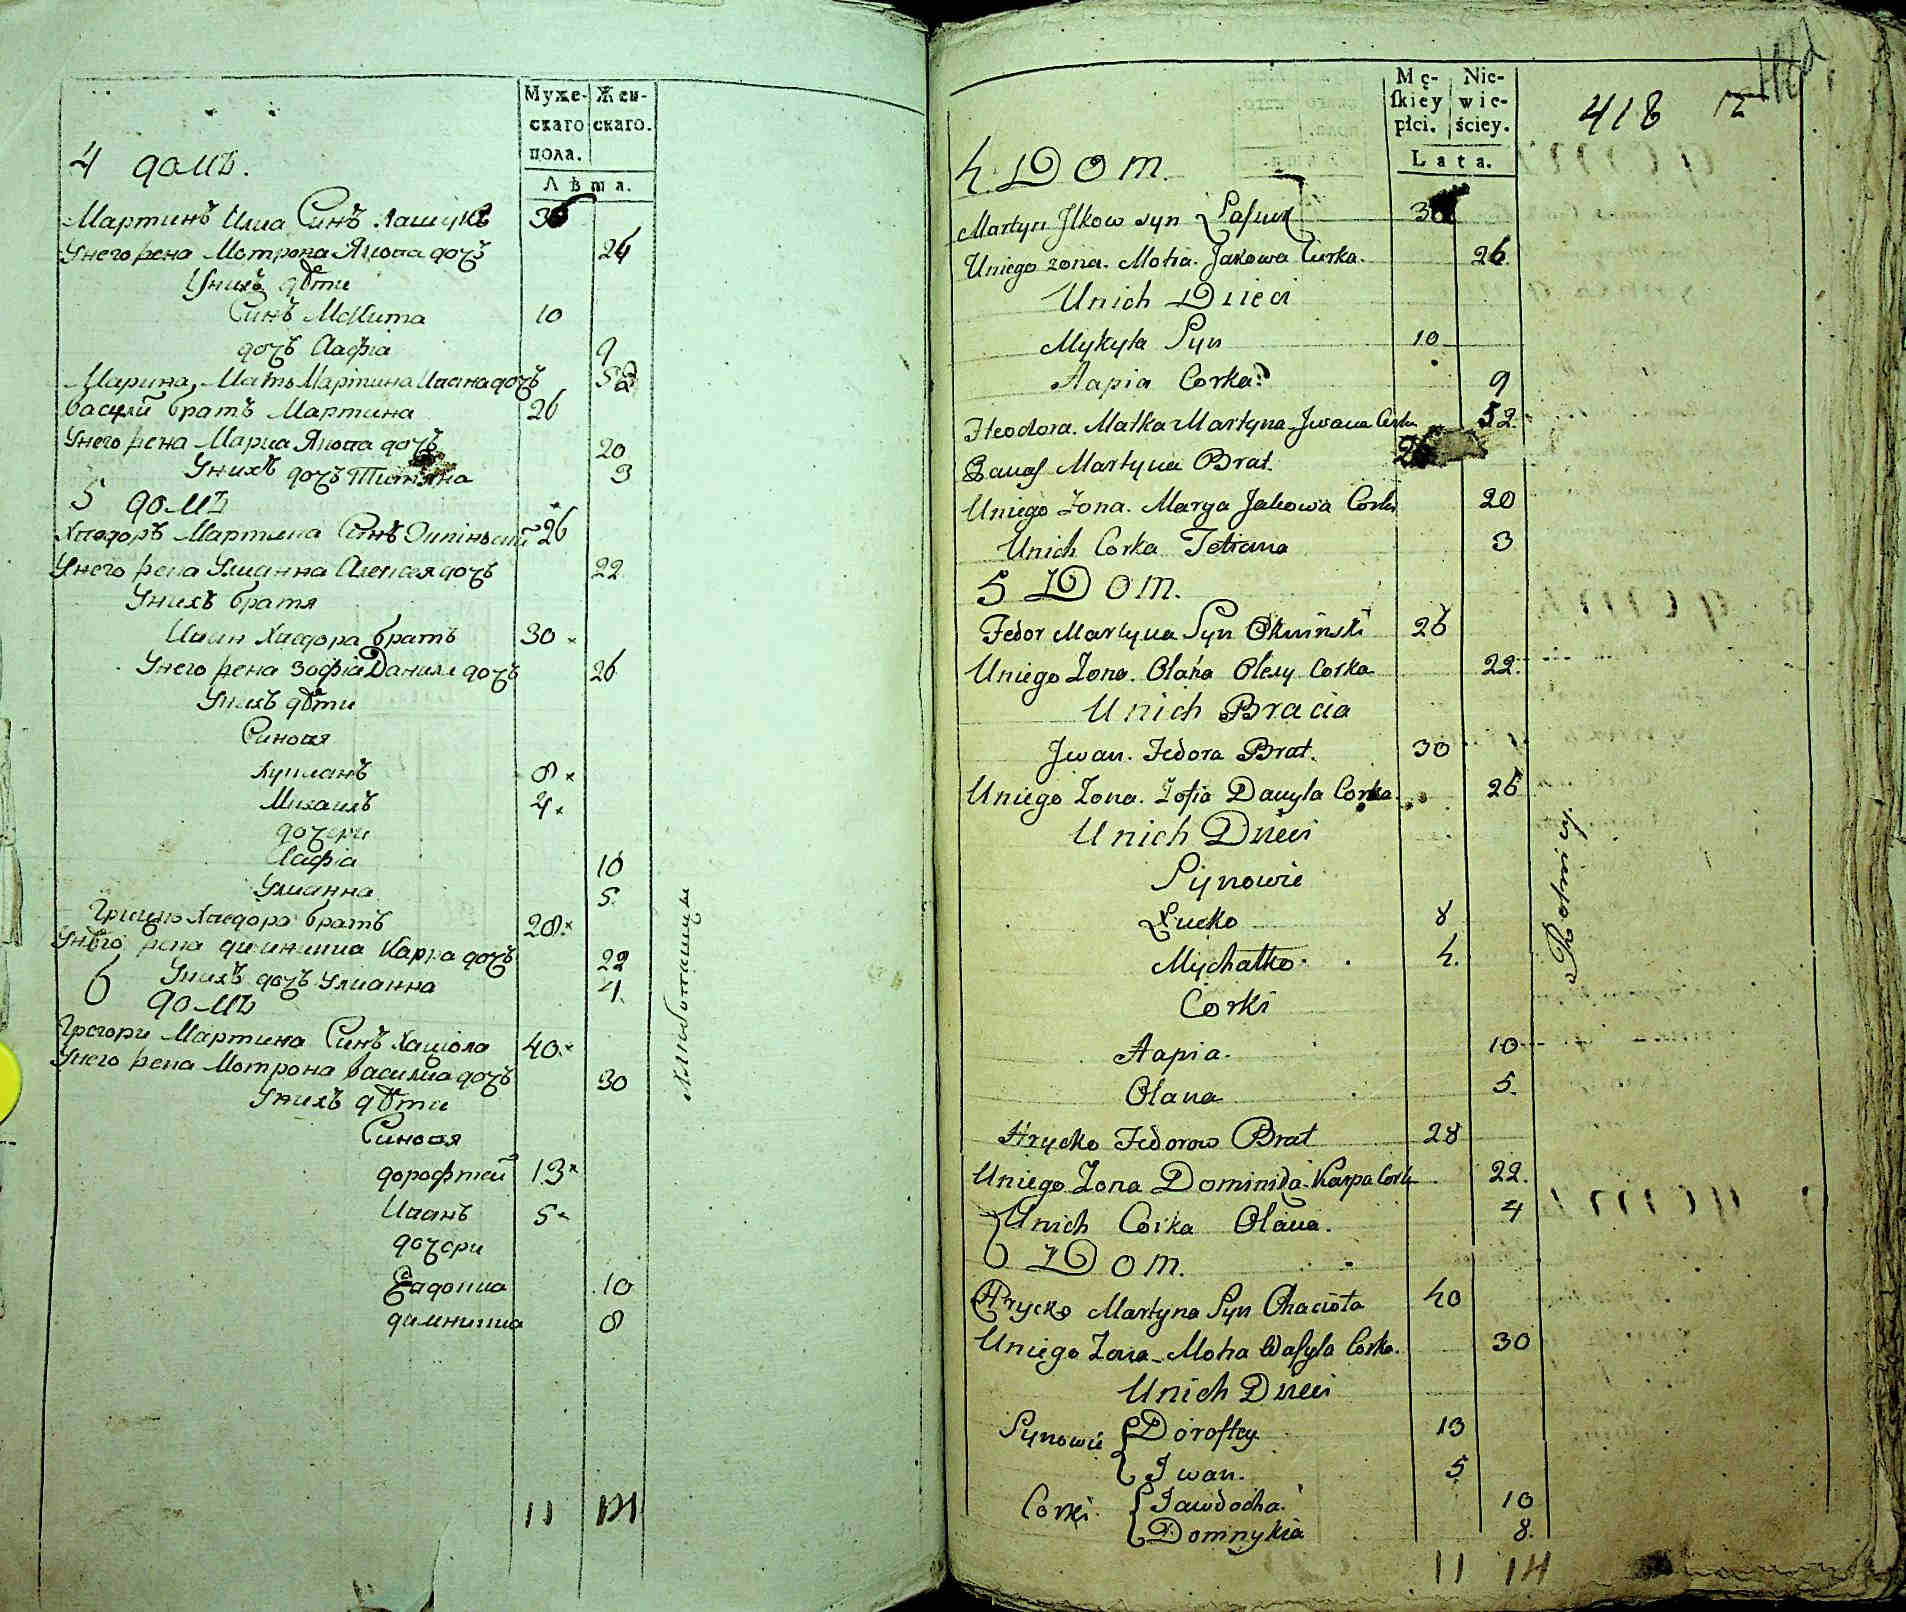 Муже-скаго пола. Жен-скаго.
Лѣта.
4 домъ.
Мартинъ Илиа Синъ Лашукъ 36
Унего жена Мотрона Якова дочъ 26
Унихъ дѣти
Синъ Микита 10
дочъ Агафіа 9
Марина Мать Мартина Ивана дочъ 52
Василий братъ Мартина 26
Унего жена Мариа Якова дочъ 20
Унихъ дочъ Татияна 3
5 домъ
Хведоръ Мартина Синъ 26
Унего жена Улианна Алексея дочъ 22
Унихъ братя
Иван Хведора братъ 30
Унего жена Зофіа Данила дочъ 26
Унихъ дѣти
Синовя
8
Михаилъ 4
дочери
Агафіа 10
Улианна 5
Грицко Хведора братъ 28
Унего жена Карпа дочъ 22
Унихъ дочъ Улианна 4
6 домъ
Грегори Мартина Синъ Хаціола 40
Унего жена Мотрона Василиа дочъ 30
Унихъ дѣти
Синовя
дорофтей 13
Иванъ 5
дочери
Евдокиа 10
8
11 14
Mę-ſkiey płci. Nie-wie-ściey.
Lata.
418
4 Dom.
Martyn Ilkow syn
Uniego zona. Motra. Jakowa Corka. 26
Unich Dzieci
Mykyta Syn 10
Aapia Corka 9
Theodora. Matka Martyna Jwana Corka 52
Martyna Brat.
Uniego Zona. Marya Jakowa Corka 20
Unich Corka Tetiana 3
5 Dom.
Fedor Martyna Syn Okninski 26
Uniego Zona. Olana Olexy Corka 22
Unich Bracia
Jwan. Fedora Brat. 30
Uniego Zona. Zofia Danyla Corka. 26
Unich Dzieci
Synowie
Łucko 8
Mychałko 4.
Corki
Aapia. 10
Olana 5.
Hrycko Fedorow Brat 28
Uniego Zona Dominika Karpa Corka 22.
Unich Corka Olana. 4
6 Dom.
Hrycko Martyna Syn Chacioła 40
Uniego Zona Motra Wasyla Corka. 30
Unich Dzieci
Synowie Doroftey 13
Iwan. 5
Corki Jawdocha. 10
Domnykia 8.
11 14
Rotnicy